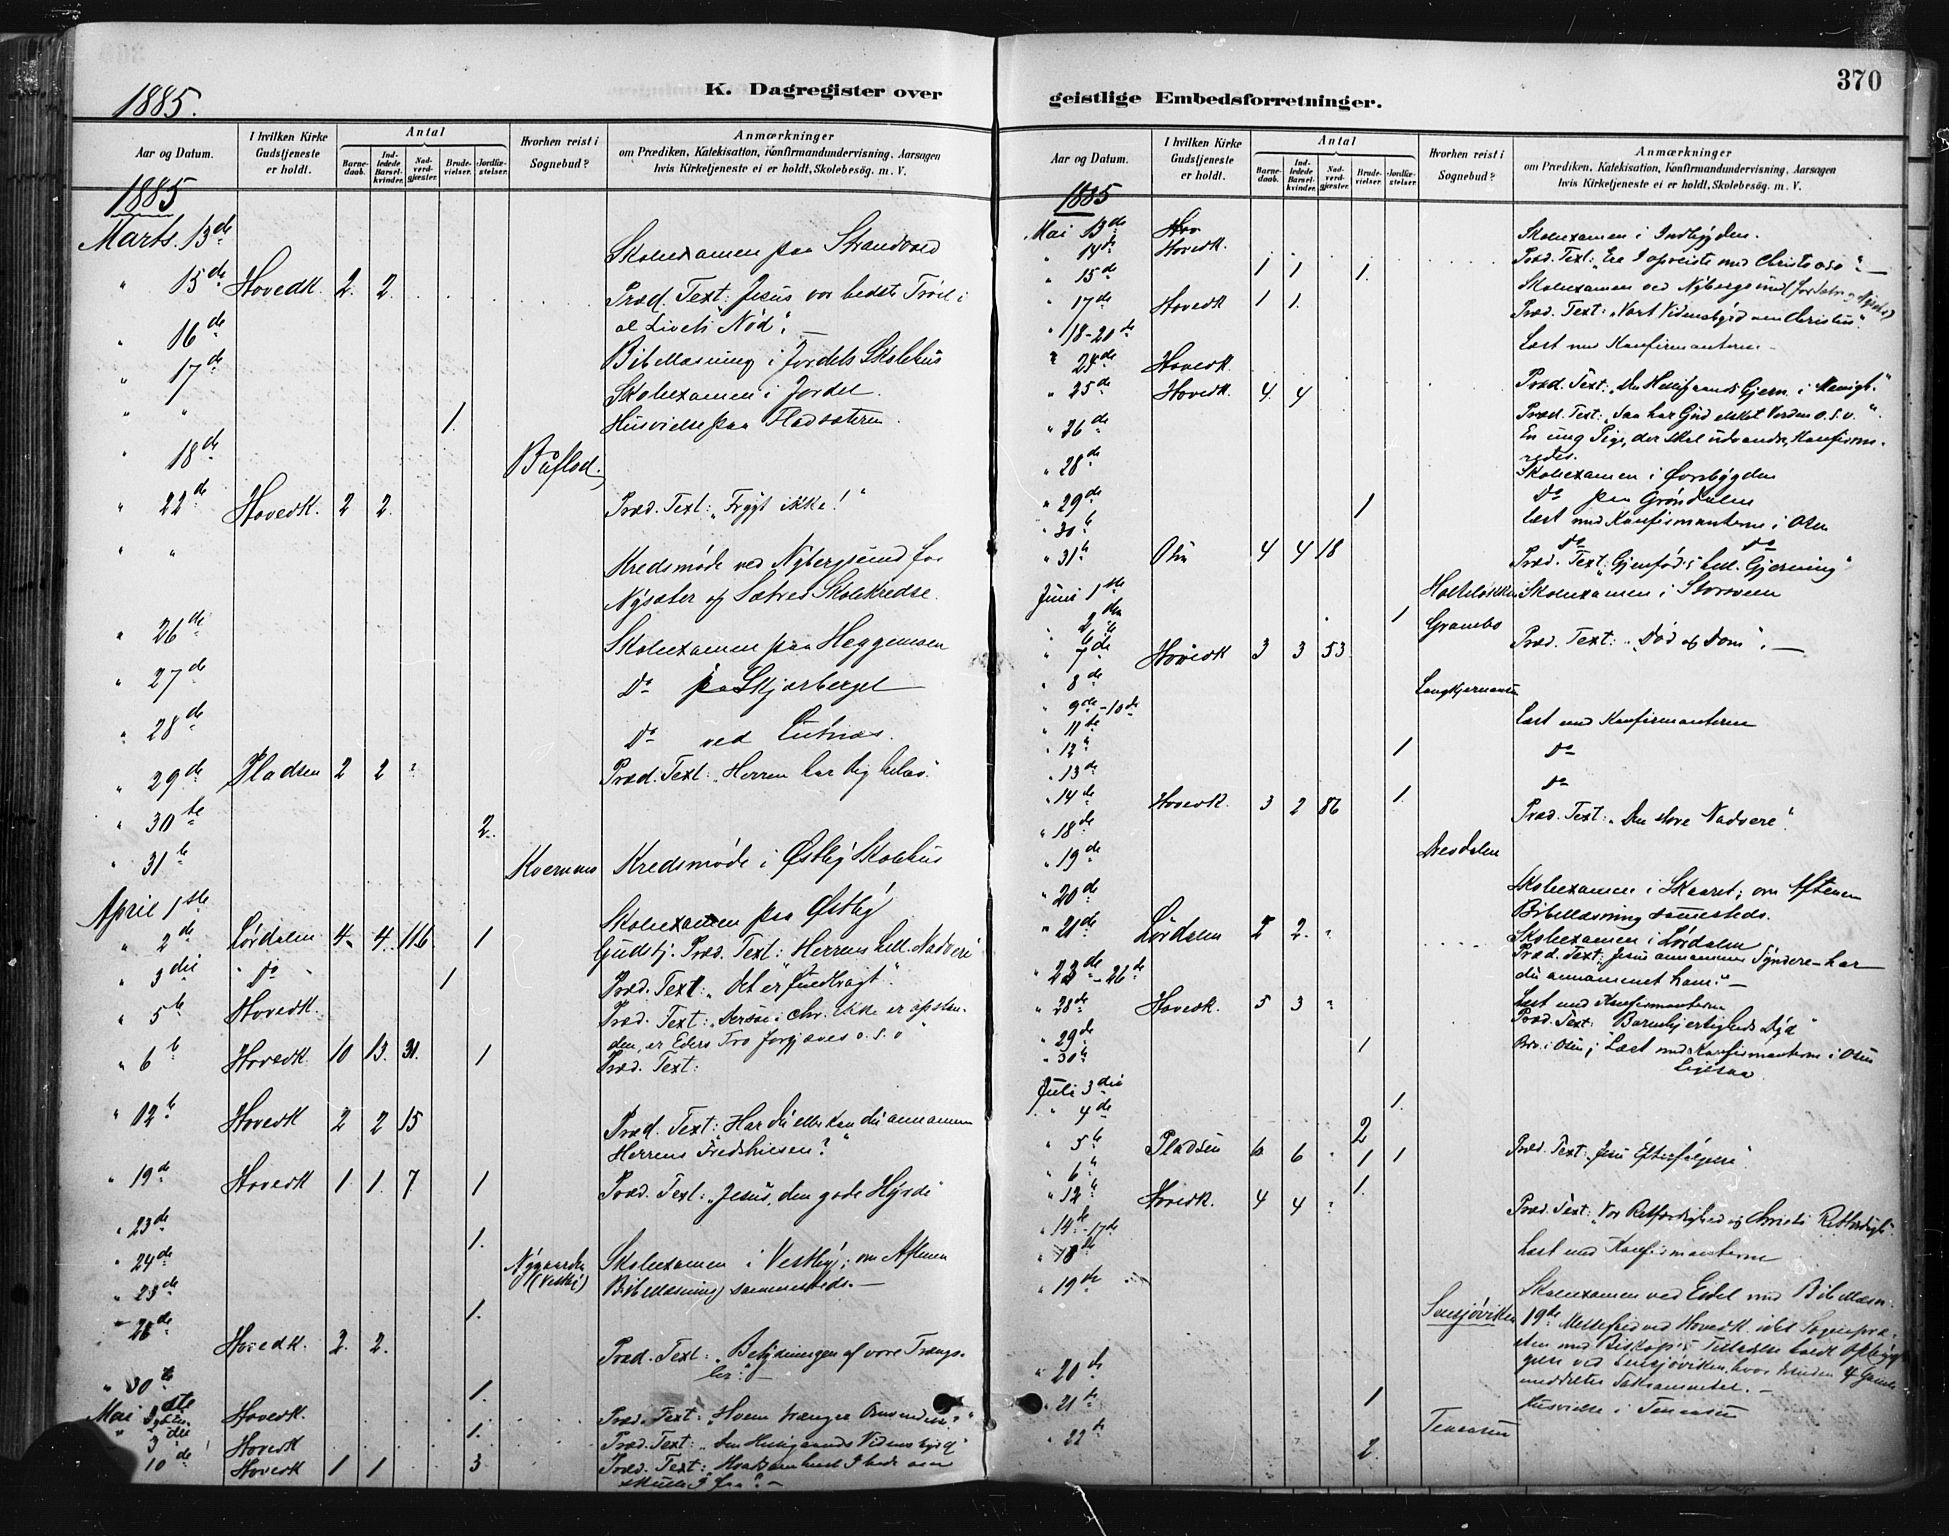 1885.
K. Dagregister over
Aar og Datum.
I hvilken Kirke Gudstjeneste er holdt.
Antal
Barnedaab.
Indledede Barselkvinder.
Nadverdgjæster.
Brudevielser.
Jordfæstelser.
Hvorhen reist i Sognebud?
Anmærkninger
om Prædiken, Katekisation, Konfirmandundervisning, Aarsagen
hvis Kirketjeneste ei er holdt, Skolebesøg. m. V.
1885
Marts. 13de Skolexamen paa Strandvold
" 15de Hovedk. 2. 2. Præd. Text: Jesus vor bedste Trøst i
al Livets Nød".
" 16de Bibellæsning i Jordets Skolehus
" 17de Skolexamen i Jordet.
" " 1. Husvielse paa
" 18de
" 22de Hovedk. 2 2. Præd. Text: "Frygt ikke!"
" " Kredsmøde ved Nybergsund for
Nysæter og Sætres Skolekredse.
" 26de Skolexamen paa Heggemoen
" 27de Do paa Skjærberget
" 28de Do ved Lutnæs.
" 29de Pladsen 2 2 " Præd. Text: "Herren har dig behov."
" 30te 2.
" 31te Kværnæs Kredsmøde i Østby Skolehus
April 1ste Skolexamen paa Østby
" 2de Lørdalen 4. 4. 116 1 Gudstj. Præd. Text: Herrens hell. Nadvere
" 3die " Do 1 Præd. Text: "Det er fuldbragt".
" 5te Hovedk. Præd. Text: "Dersom Chr. ikke er opstan-
den, er Eders Tro forgjæves o.s.v"
" 6te Hovedk. 10 13. 31. 1 Præd. Text:
" 12te Hovedk 2 2 15 Præd. Text: Har du eller kan du annamme
Herrens Fredshilsen?"
" 19de Hovedk 1. 1. 7 1 Præd. Text: "Jesus, den gode Hyrde"
" 23de 1.
" 24de Nygaarden (Vestby) Skolexamen i Vestby; om Aftenen
" 25de 1. Bibellæsning sammesteds.—
" 26de Hovedk. 2. 2. Præd. Text: "Betydningen af vore Trængs-
ler".
" 30te 1.
Mai Hovedk. 1. Præd. Text: "Hvem trænger Omvendelse?"
" 3die Hovedk Præd. Text: "Den Helligaands Vidnesbyrd"
10de Hovedk 1 1 3 Præd. Text: "Hvadsomhelst I bede om
skulle I faa".—
geistlige Embedsforretninger.
370
Aar og Datum.
I hvilken Kirke Gudstjeneste er holdt.
Antal
Barnedaab.
Indledede Barselkvinder.
Nadverdgjæster.
Brudevielser.
Jordfæstelser.
Hvorhen reist i Sognebud?
Anmærkninger
om Prædiken, Katekisation, Konfirmandundervisning, Aarsagen
hvis Kirketjeneste ei er holdt, Skolebesøg. m. V.
1885
Mai 13de Skolexamen i Indbygden.
" 14de Hovedk. 1 1 1. Præd. Text: "Ere I opreiste med Christo o.s.v".—
" 15de Skolexamen ved Nybergsund
" 17de Hovedk 1 1. Præd. Text: "Vort Vidnesbyrd om Christus".
" 18-20de Læst med Konfirmanterne—
" 24de Hovedk. Præd. Text: "Den Helligaands Gjern. i Menigh."
" 25de Hovedk. 4. 4 Præd. Text: "Saa har Gud elsket Verden o.s.v."
" 26de En ung Pige, der skal udvandre, konfirme-
redes.
" 28de Skolexamen i Øvrebygden
" 29de 1 Do paa Grøndalen
" 30te Læst med Konfirmanterne i Osen
" 31te Osen 4 4 18 Do Do
Præd. Text: "Gjenføds. hell. Gjerning"
Juni 1ste Skolexamen i Storoveien
" 2den 1 Grambo
" 7de Hovedk 3 3 53 Præd. Text: "Død og Dom".—
" 8de
" 9de-10de Læst med Konfirmanterne
" 11te
" 12te 1 Do
" 13de Do
" 14de Hovedk. 3 2 86 1. Præd. Text: "Den store Nadvere".
" 18de
" 19de
" 20de Skolexamen i Skaaret; om Aftenen
Bibellæsning samesteds.
" 21de Lørdalen 2 2. " Skolexamen i Lørdalen
Præd. Text: Jesus annammer Syndere—har
" 23de-26de du annammet ham?"—
Læst med Konfirmanterne
" 28de Hovedk. 5 3 " Præd. Text: "Barmhjertigheds Dyd"
" 29de 1 Læst med Konfirmanterne i Osen
" 30te Ligesaa
Juli 3die 1.
" 4de 2
" 5te Pladsen 6 6 " 1 1 Præd. Text: "Jesu Efterfølgere".
" 6te 1.
" 12te Hovedk. 4 4 " Præd. Text: "Vor Retfærdighed og Christi Retfærdigh."
" 14de-17de Læst med Konfirmanterne
" 18de Skolexamen ved Eidet med Bibellæsn.
" 19de Sensjøvikken 19de Messefald ved Hovedk. idet Sognepræ-
sten med Biskop's Tilladelse holdt Opbyg-
" 20de gelse ved Sensjøvikken, hvor desuden 4 Gamle
meddeltes Sakramentet.—
" 21de 1 Husvielse i
" 22de 2.